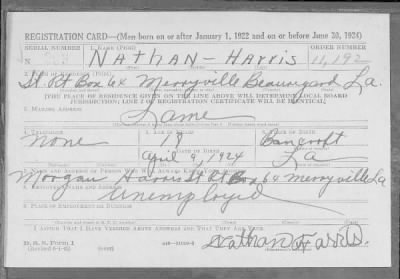 REGISTRATION CARD—(Men born on or after January 1, 1922 and on or before June 30, 1924)
SERIAL NUMBER 1. NAME (Print) ORDER NUMBER
N Nathan - Harris 11,192
2. PLACE OF RESIDENCE (Print)
St. Rt Box 64 Merryville Beauregard La.
[THE PLACE OF RESIDENCE GIVEN ON THE LINE ABOVE WILL DETERMINE LOCAL BOARD
JURISDICTION; LINE 2 OF REGISTRATION CERTIFICATE WILL BE IDENTICAL]
3. MAILING ADDRESS
Same
4. TELEPHONE 5. AGE IN YEARS 6. PLACE OF BIRTH
None 18 Bancroft
DATE OF BIRTH
April 9, 1924 La
7. NAME AND ADDRESS OF PERSON WHO WILL ALWAYS KNOW YOUR ADDRESS
Morgan Harris St Rt Box 64 Merryville La
8. EMPLOYER'S NAME AND ADDRESS
Unemployed
9. PLACE OF EMPLOYMENT OR BUSINESS
I AFFIRM THAT I HAVE VERIFIED ABOVE ANSWERS AND THAT THEY ARE TRUE.
D. S. S. Form 1
Nathan Harris